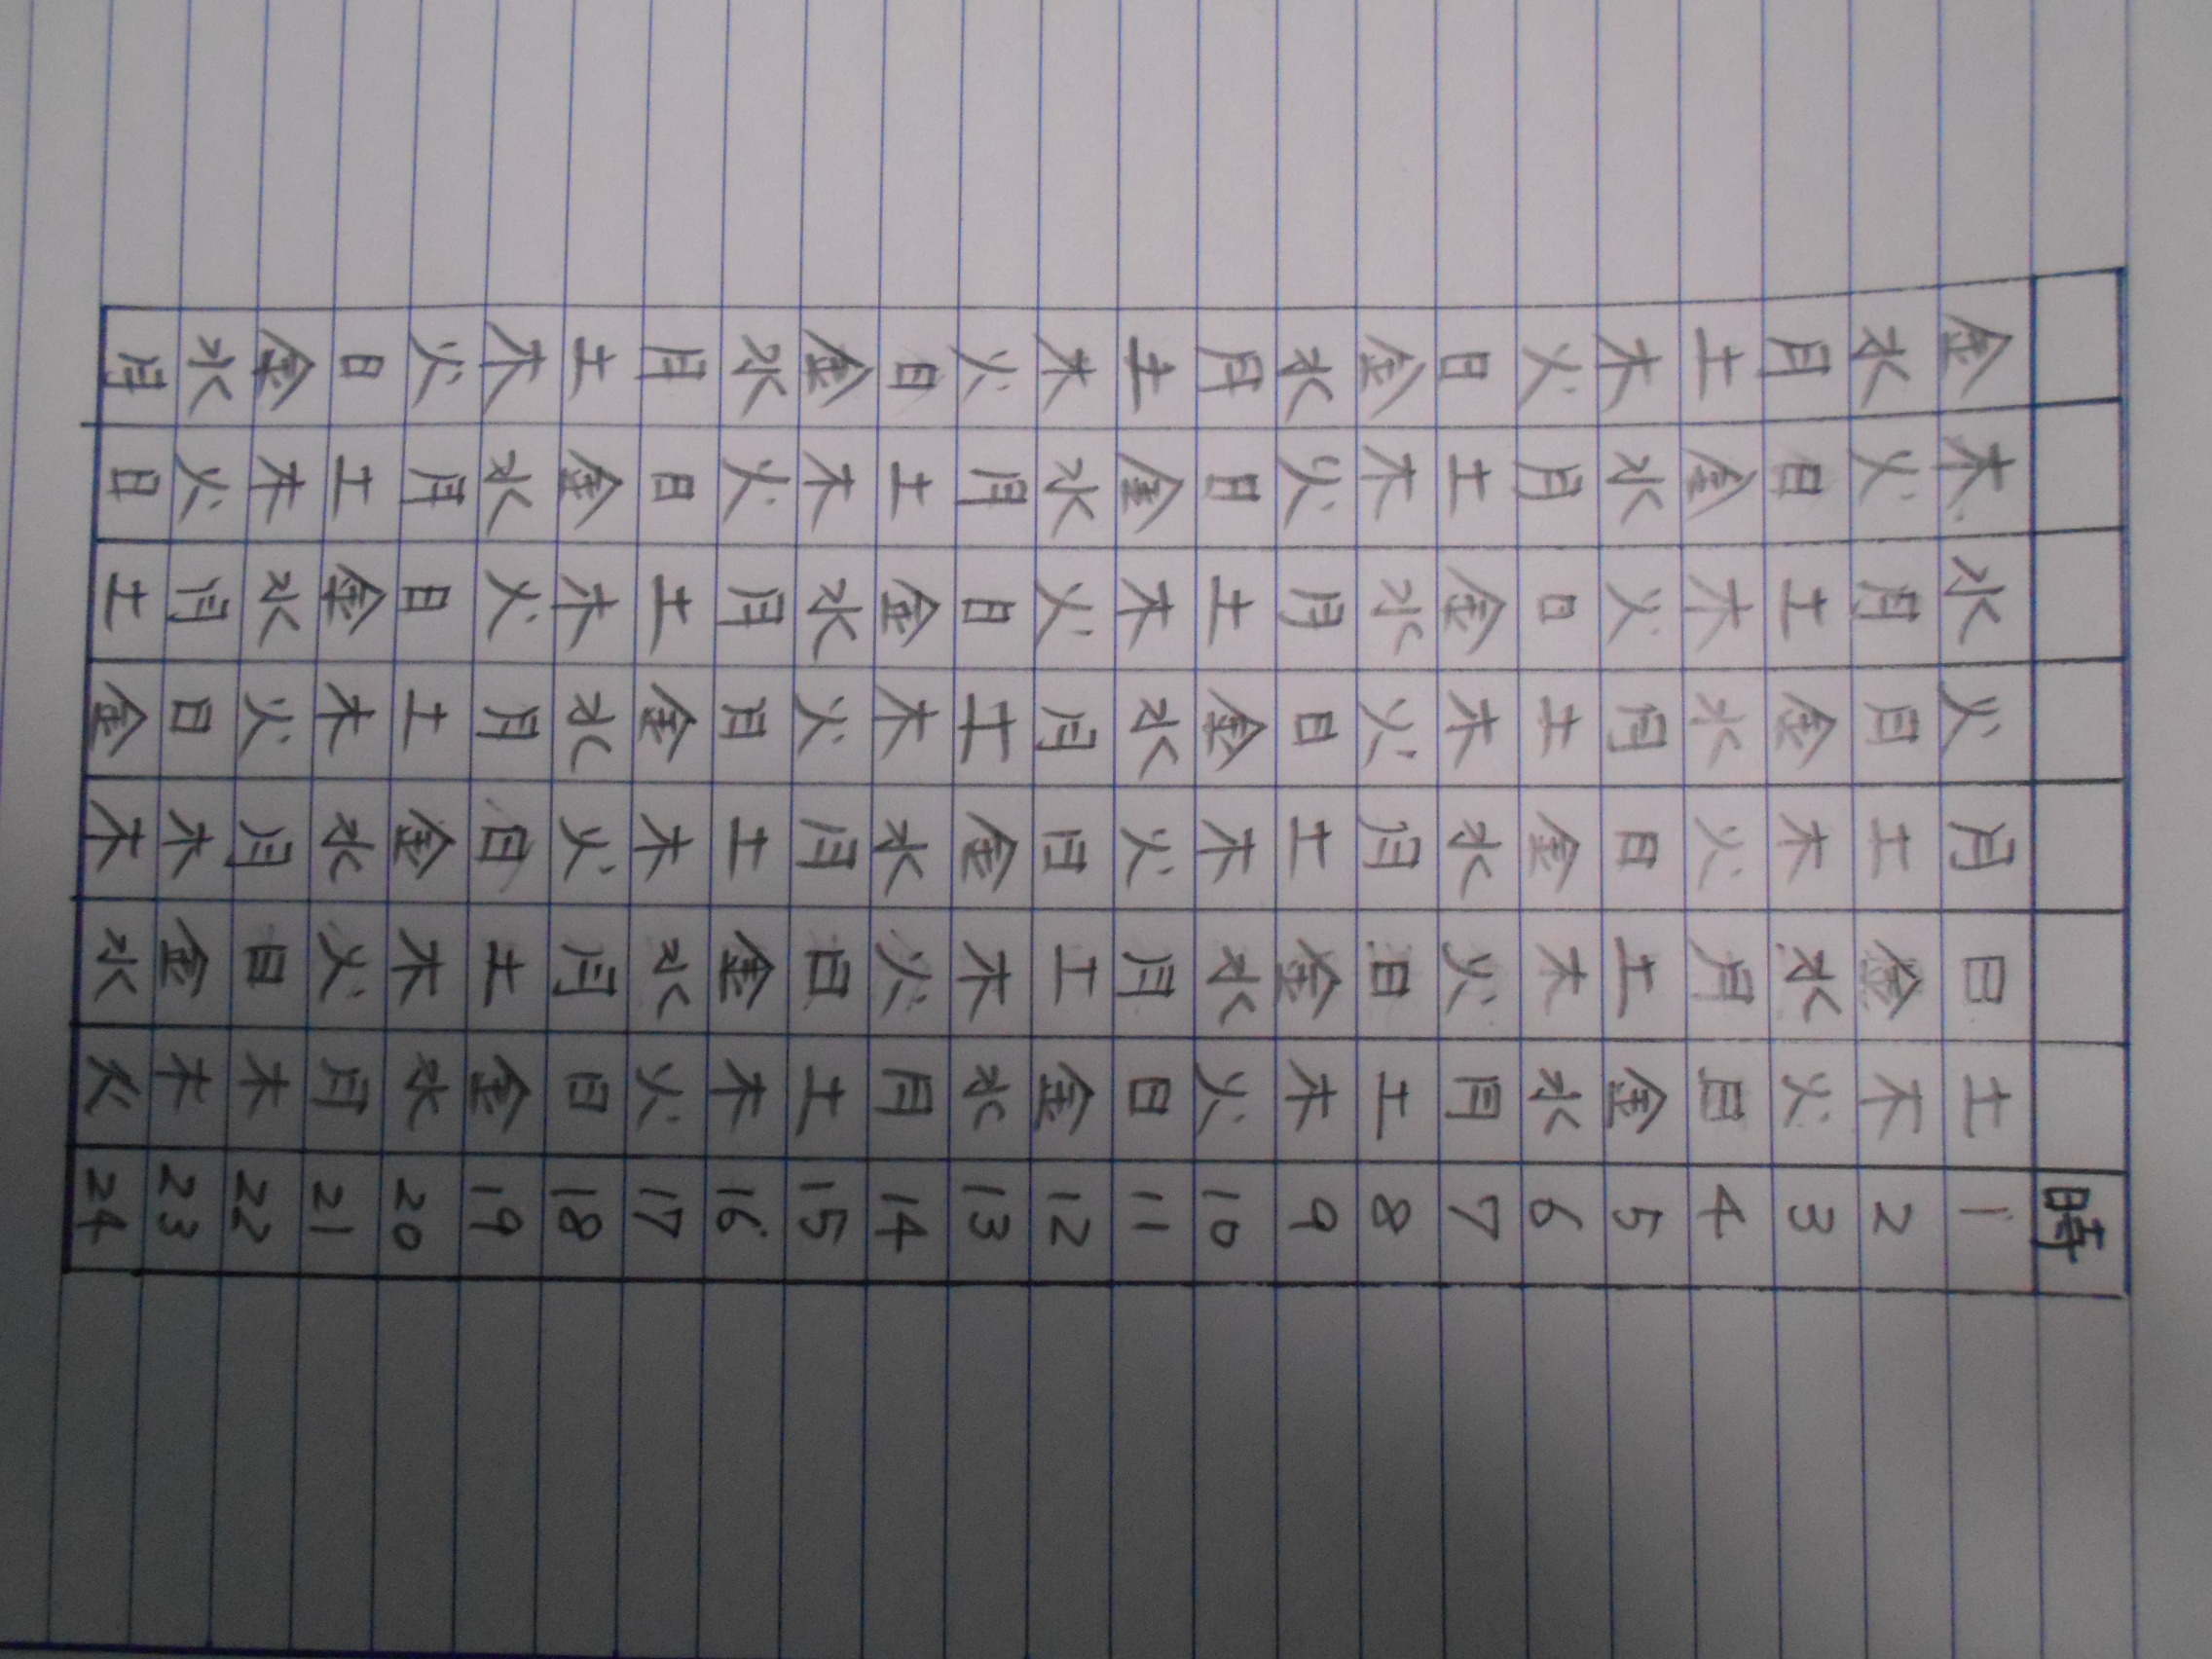 時
金 木 水 火 月 日 土 1
水 火 月 月 土 金 木 2
月 日 土 金 木 水 火 3
土 金 木 水 火 月 日 4
木 水 火 月 日 土 金 5
火 月 日 土 金 木 水 6
日 土 金 木 水 火 月 7
金 木 水 火 月 日 土 8
水 火 月 日 土 金 木 9
月 日 土 金 木 水 火 10
土 金 木 水 火 月 日 11
木 水 火 月 日 土 金 12
火 月 日 土 金 木 水 13
日 土 金 木 水 火 月 14
金 木 水 火 月 日 土 15
水 火 月 月 土 金 木 16
月 日 土 金 木 水 火 17
土 金 木 水 火 月 日 18
木 水 火 月 日 土 金 19
火 月 日 土 金 木 水 20
日 土 金 木 水 火 月 21
金 木 水 火 月 日 木 22
水 火 月 日 木 金 木 23
月 日 土 金 木 水 火 24